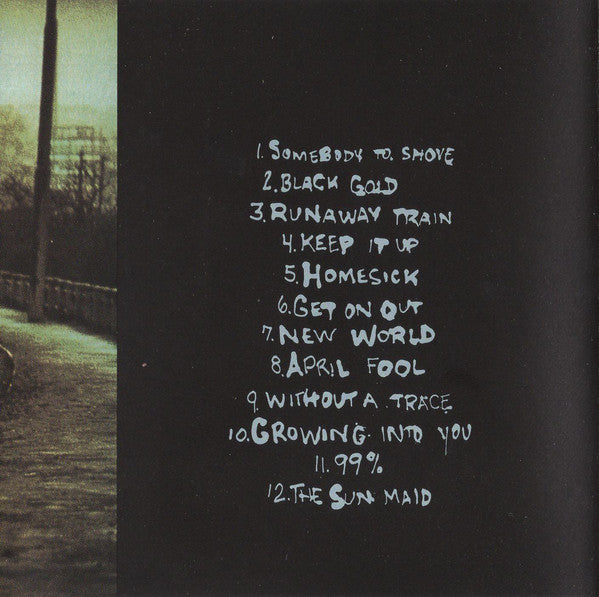 1. SOMEBODY TO SHOVE
2. BLACK GOLD
3. RUNAWAY TRAIN
4. KEEP IT UP
5. HOMESICK
6. GET ON OUT
7. NEW WORLD
8. APRIL FOOL
9. WITHOUT A TRACE
10. GROWING INTO YOU
11. 99%
12. THE SUN MAID